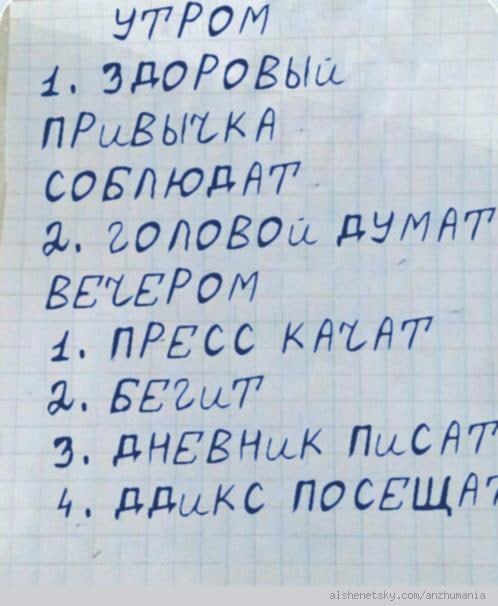 УТРОМ
1. ЗДОРОВЫЙ
ПРИВЫЧКА
СОБЛЮДАТ
2. ГОЛОВОЙ ДУМАТ
ВЕЧЕРОМ
1. ПРЕСС КАЧАТ
2. БЕГИТ
3. ДНЕВНИК ПИСАТ
4. ДДИКС ПОСЕЩАТ
alshenetsky.com/anzhumania